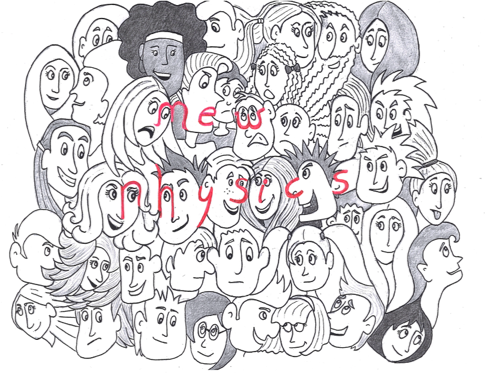 new
physics